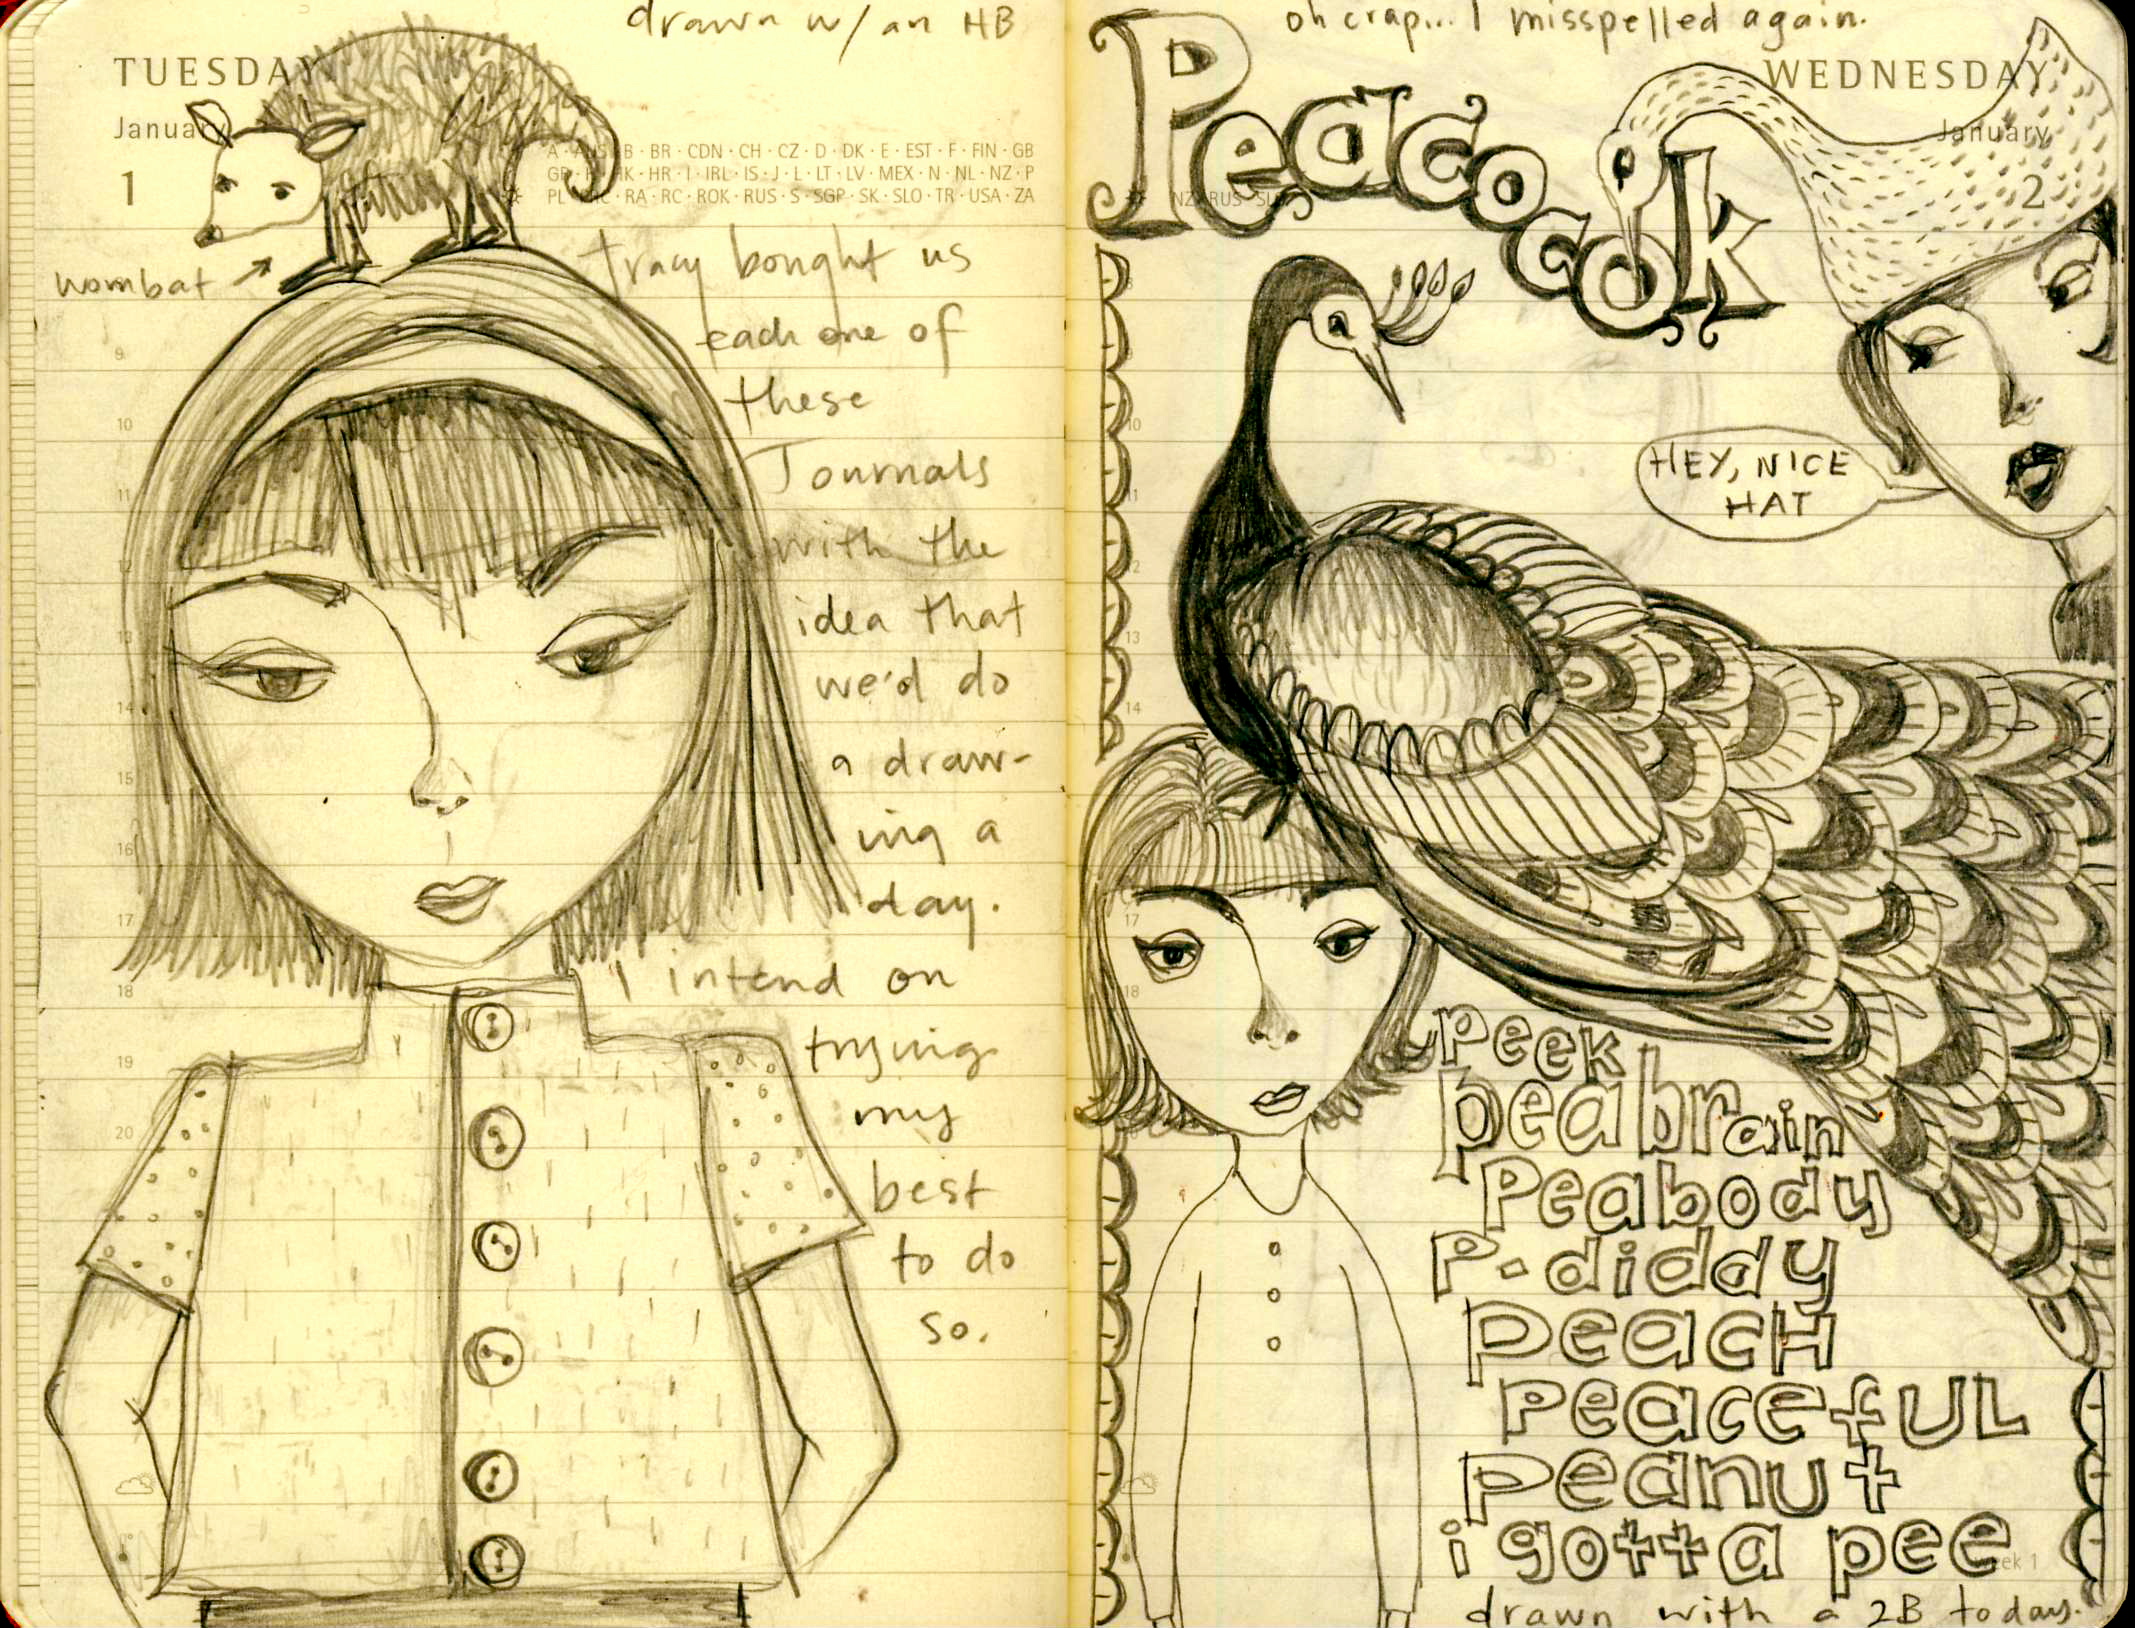 drawn w/ an HB
TUESDAY
January
1
A · B · BR · CDN · CH · CZ · D · DK · E · EST · F · FIN · GB
HK · HR · I · IRL · IS · J · L · LT · LV · MEX · N · NL · NZ · P
PL · RA · RC · ROK · RUS · S · SGP · SK · SLO · TR · USA · ZA
wombat
Tracy bought us
each one of
these
Journals
with the
idea that
we'd do
a draw-
ing a
day.
I intend on
trying
my
best
to do
so.
9
10
11
12
13
14
15
16
17
18
19
20
oh crap... I misspelled again.
Peacocok
WEDNESDAY
January
2
NZ RUS
HEY, NICE
HAT
10
11
12
13
14
17
18
peek
peabrain
Peabody
P. diddy
peacH
PeacefUL
peanut
i gotta pee
week 1
drawn with a 2B today.